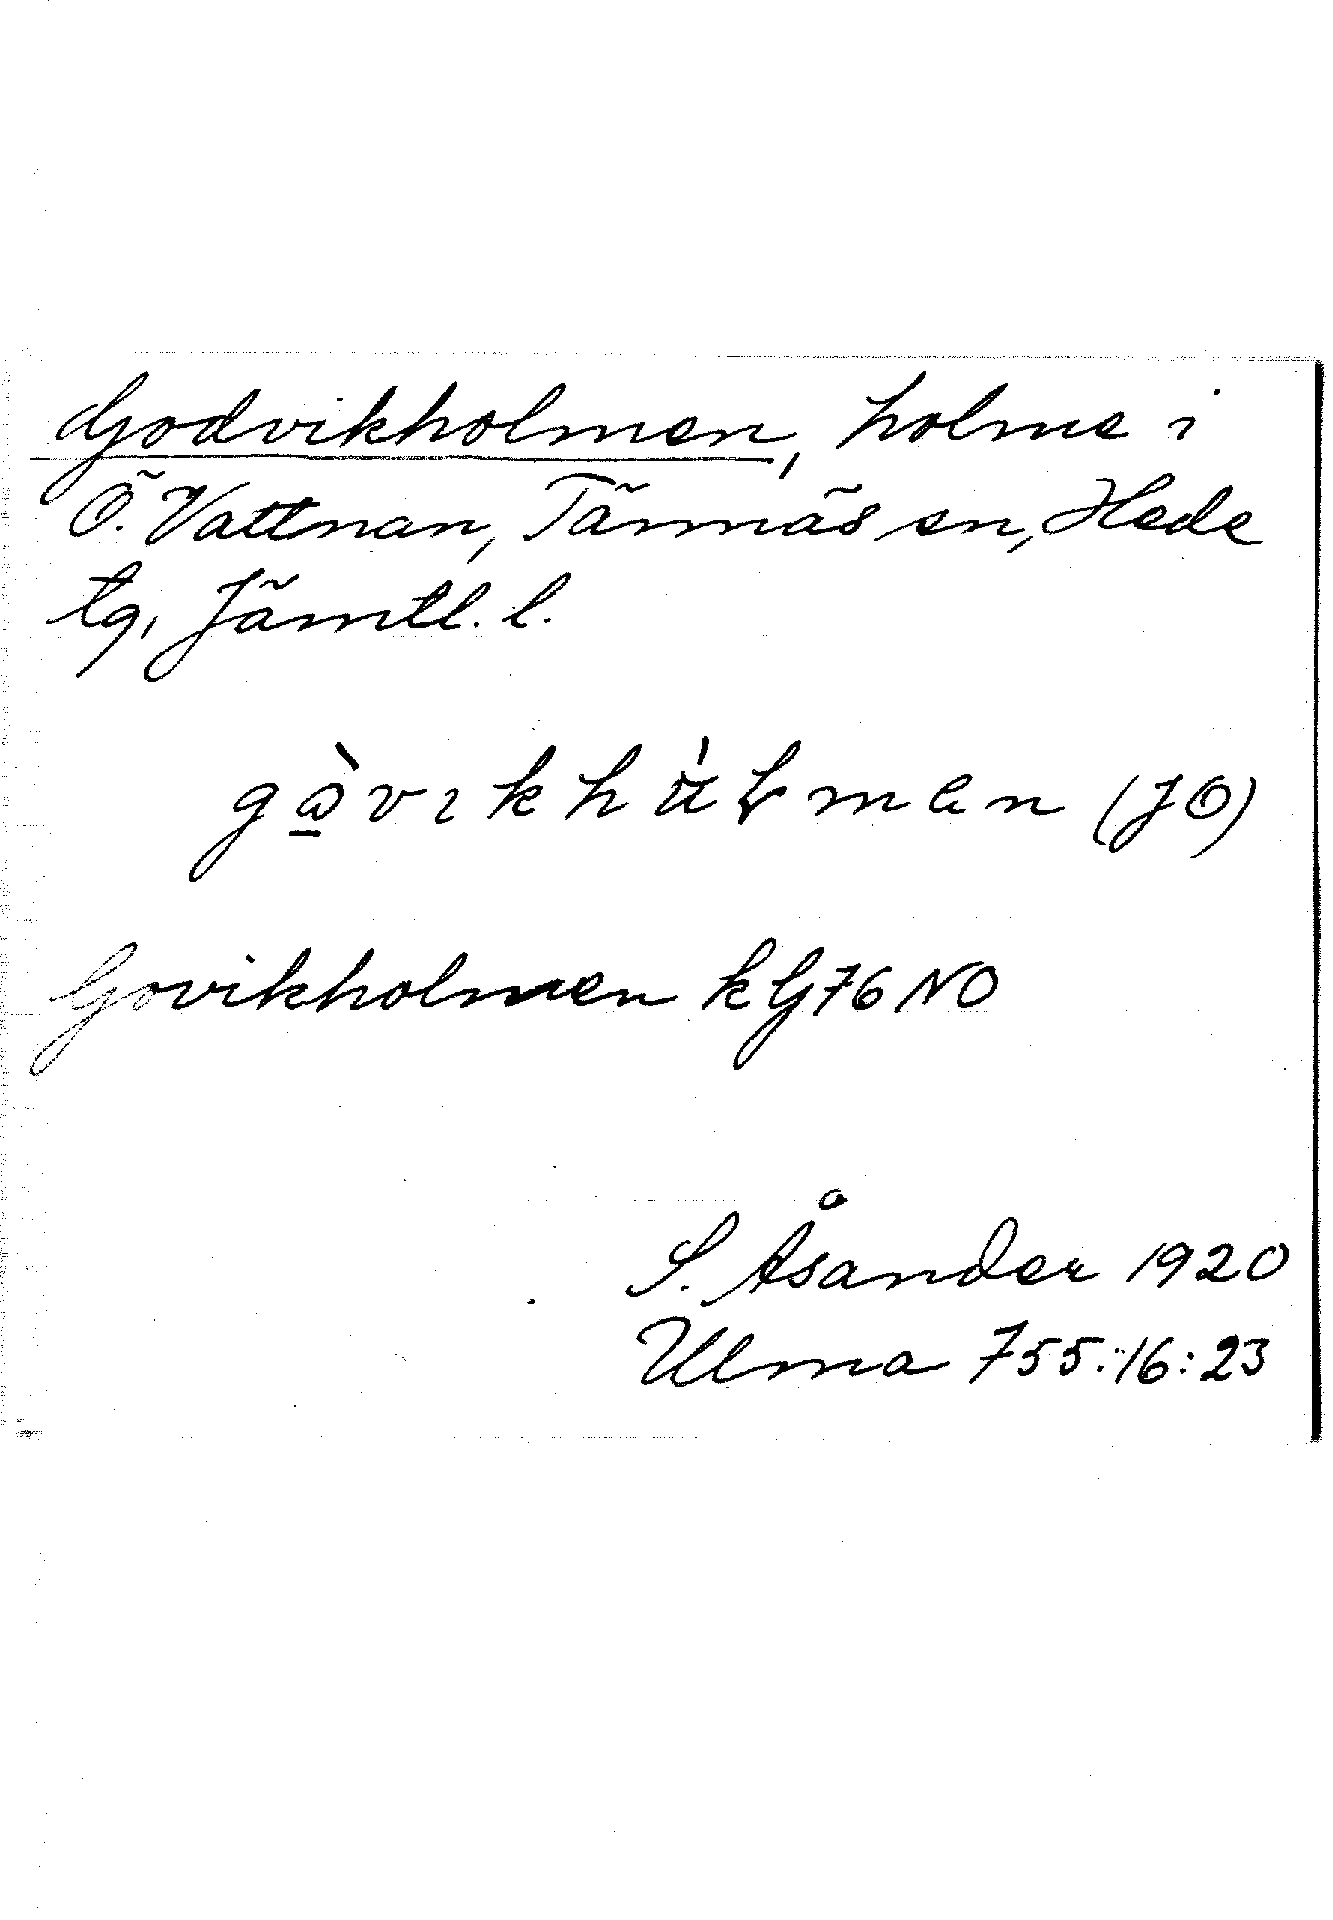 Godvikholmen, holme i
Ö. Vattnan, Tännäs sn, Hede
tg, Jämtl. l.
gòvıkhʉ̀ɫmen (JO)
Govikholmen kG76NO
S. Åsander 1920
Ulma 755:16:23